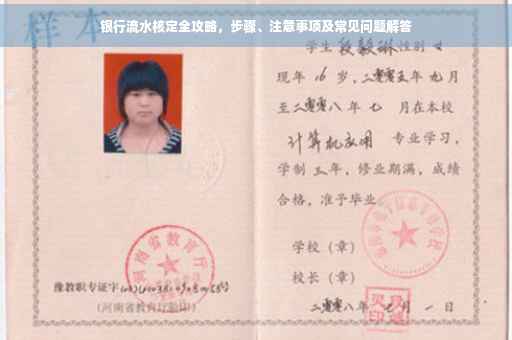 样本
银行流水核定全攻略，步骤、注意事项及常见问题解答
学生段毅琳性别女
现年16岁，二零零五年九月
至二零零八年七月在本校
计算机应用 专业学习，
学制三年，修业期满，成绩
合格，准予毕业
学校（章）
校长（章）
二零零八年 月一日
河南省教育厅
豫教职专证字
（河南省教育厅验印）